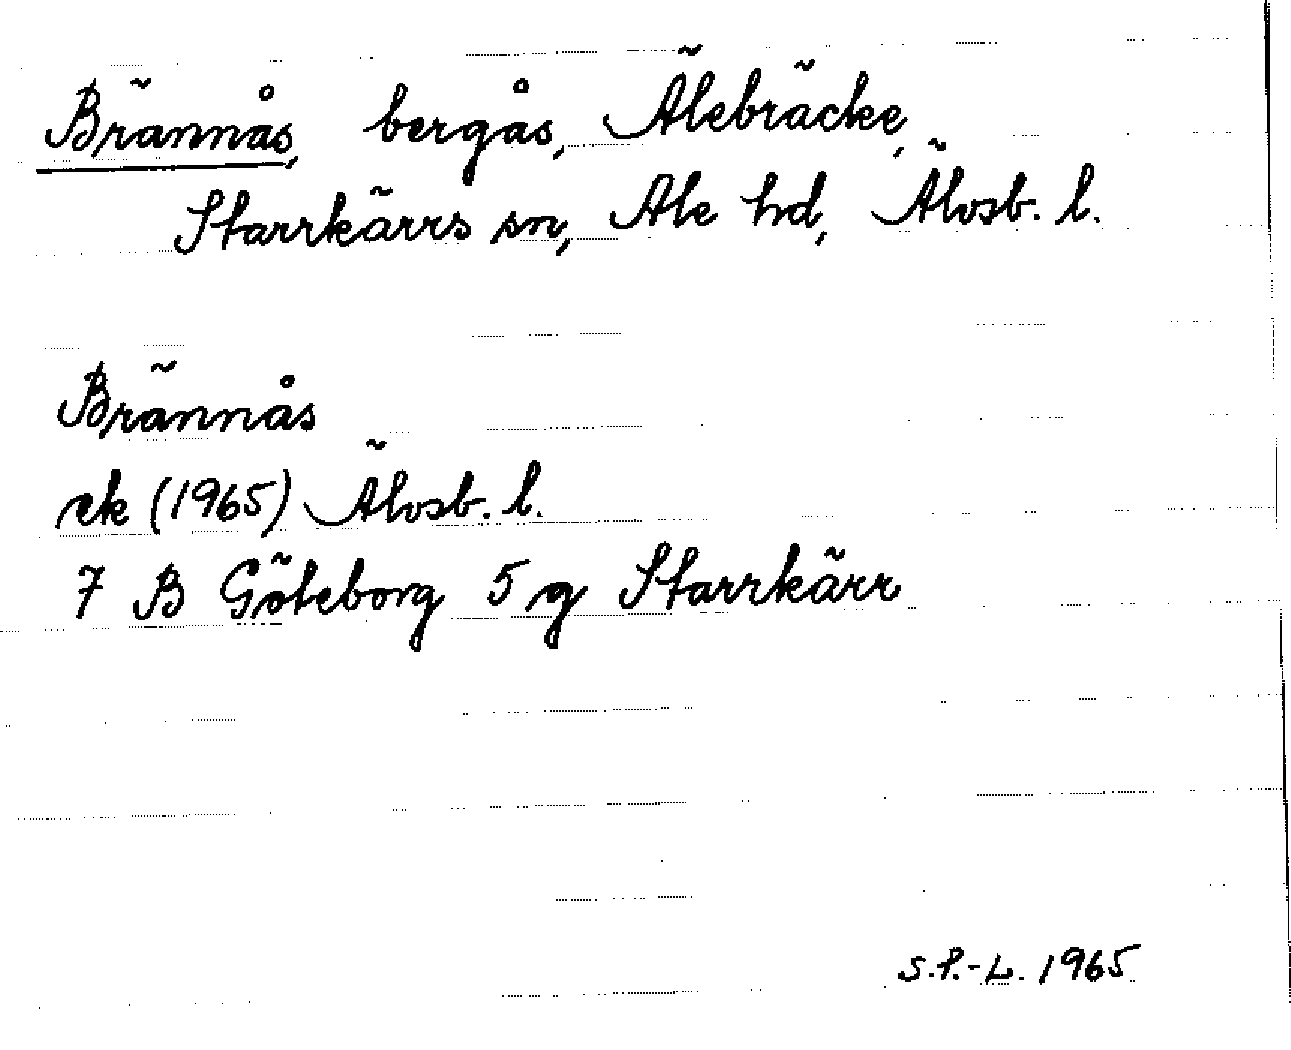 Brännås, bergås, Älebräcke,
Starrkärrs sn, Ale hd, Älvsb. l.
Brännås
ek (1965) Älvsb. l.
7 B Göteborg 5 g Starrkärr
S.P.-L. 1965